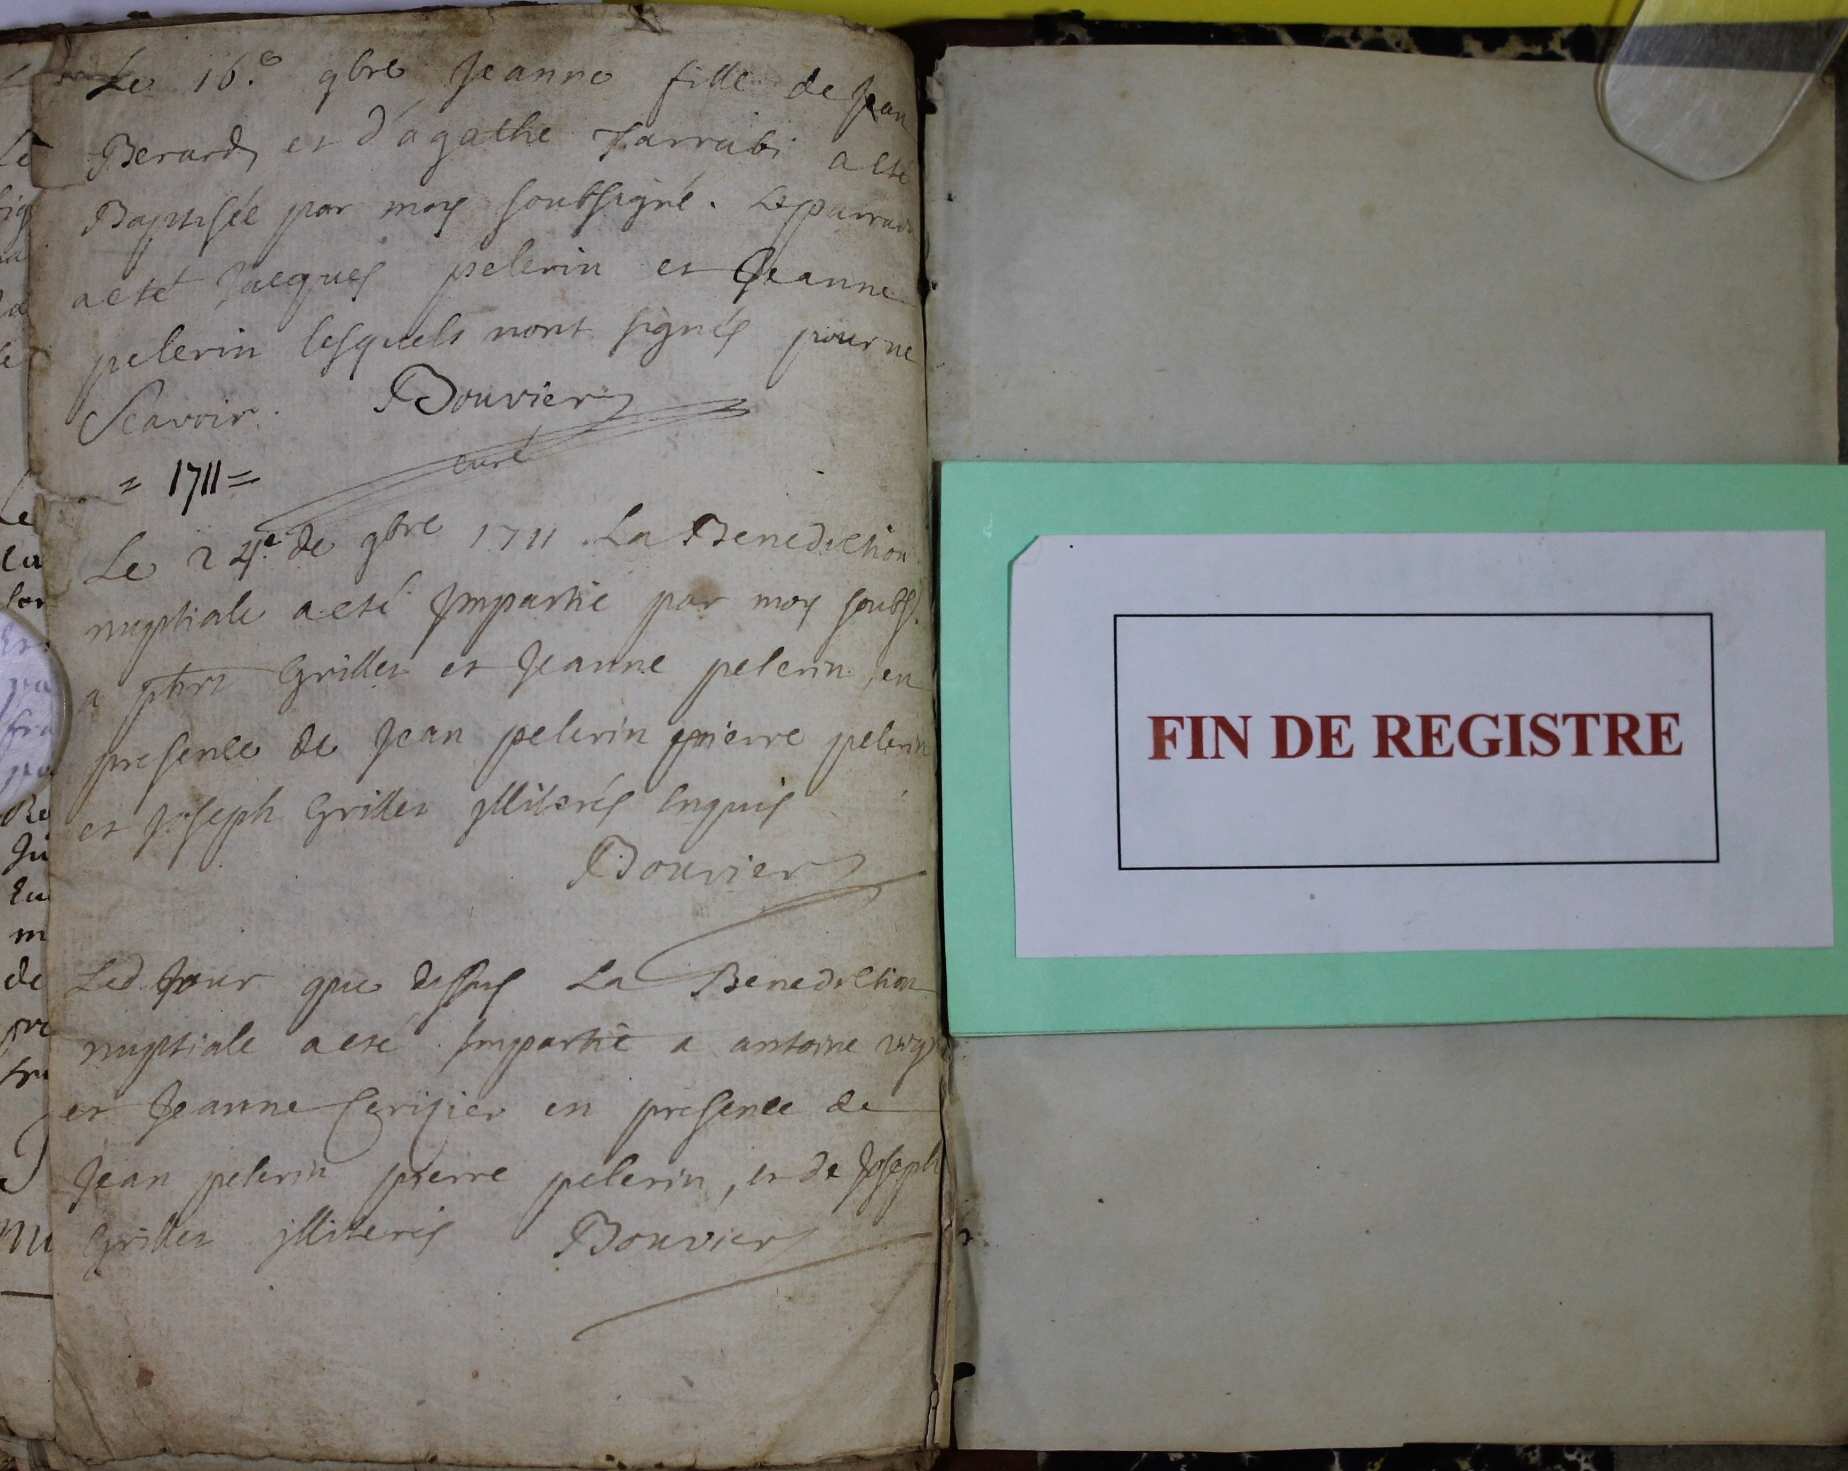 Le 16.e 9bre Jeanne fille de Jean
Berard, et d'agathe Tarrabi a esté
Baptisée par moy soubsigné. Le parrain
a esté Jacques pelerin et Jeanne
pelerin lesquels nont signés pour ne
Scavoir. Bouvier
curé
= 1711 =
Le 24.e de 9bre 1711 La Benediction
nuptiale a esté Impartie par moy soubs.
a Grillet et Jeanne pelerin, en
presence de Jean pelerin pierre pelerin
et Joseph Grillet illiterés enquis
Bouvier
Led. Jour que dessus La Benediction
nuptiale a esté Impartie a antoine
et Jeanne Cerisier en presence de
Jean pelerin pierre pelerin, et de Joseph
Grillet illiterés Bouvier
FIN DE REGISTRE